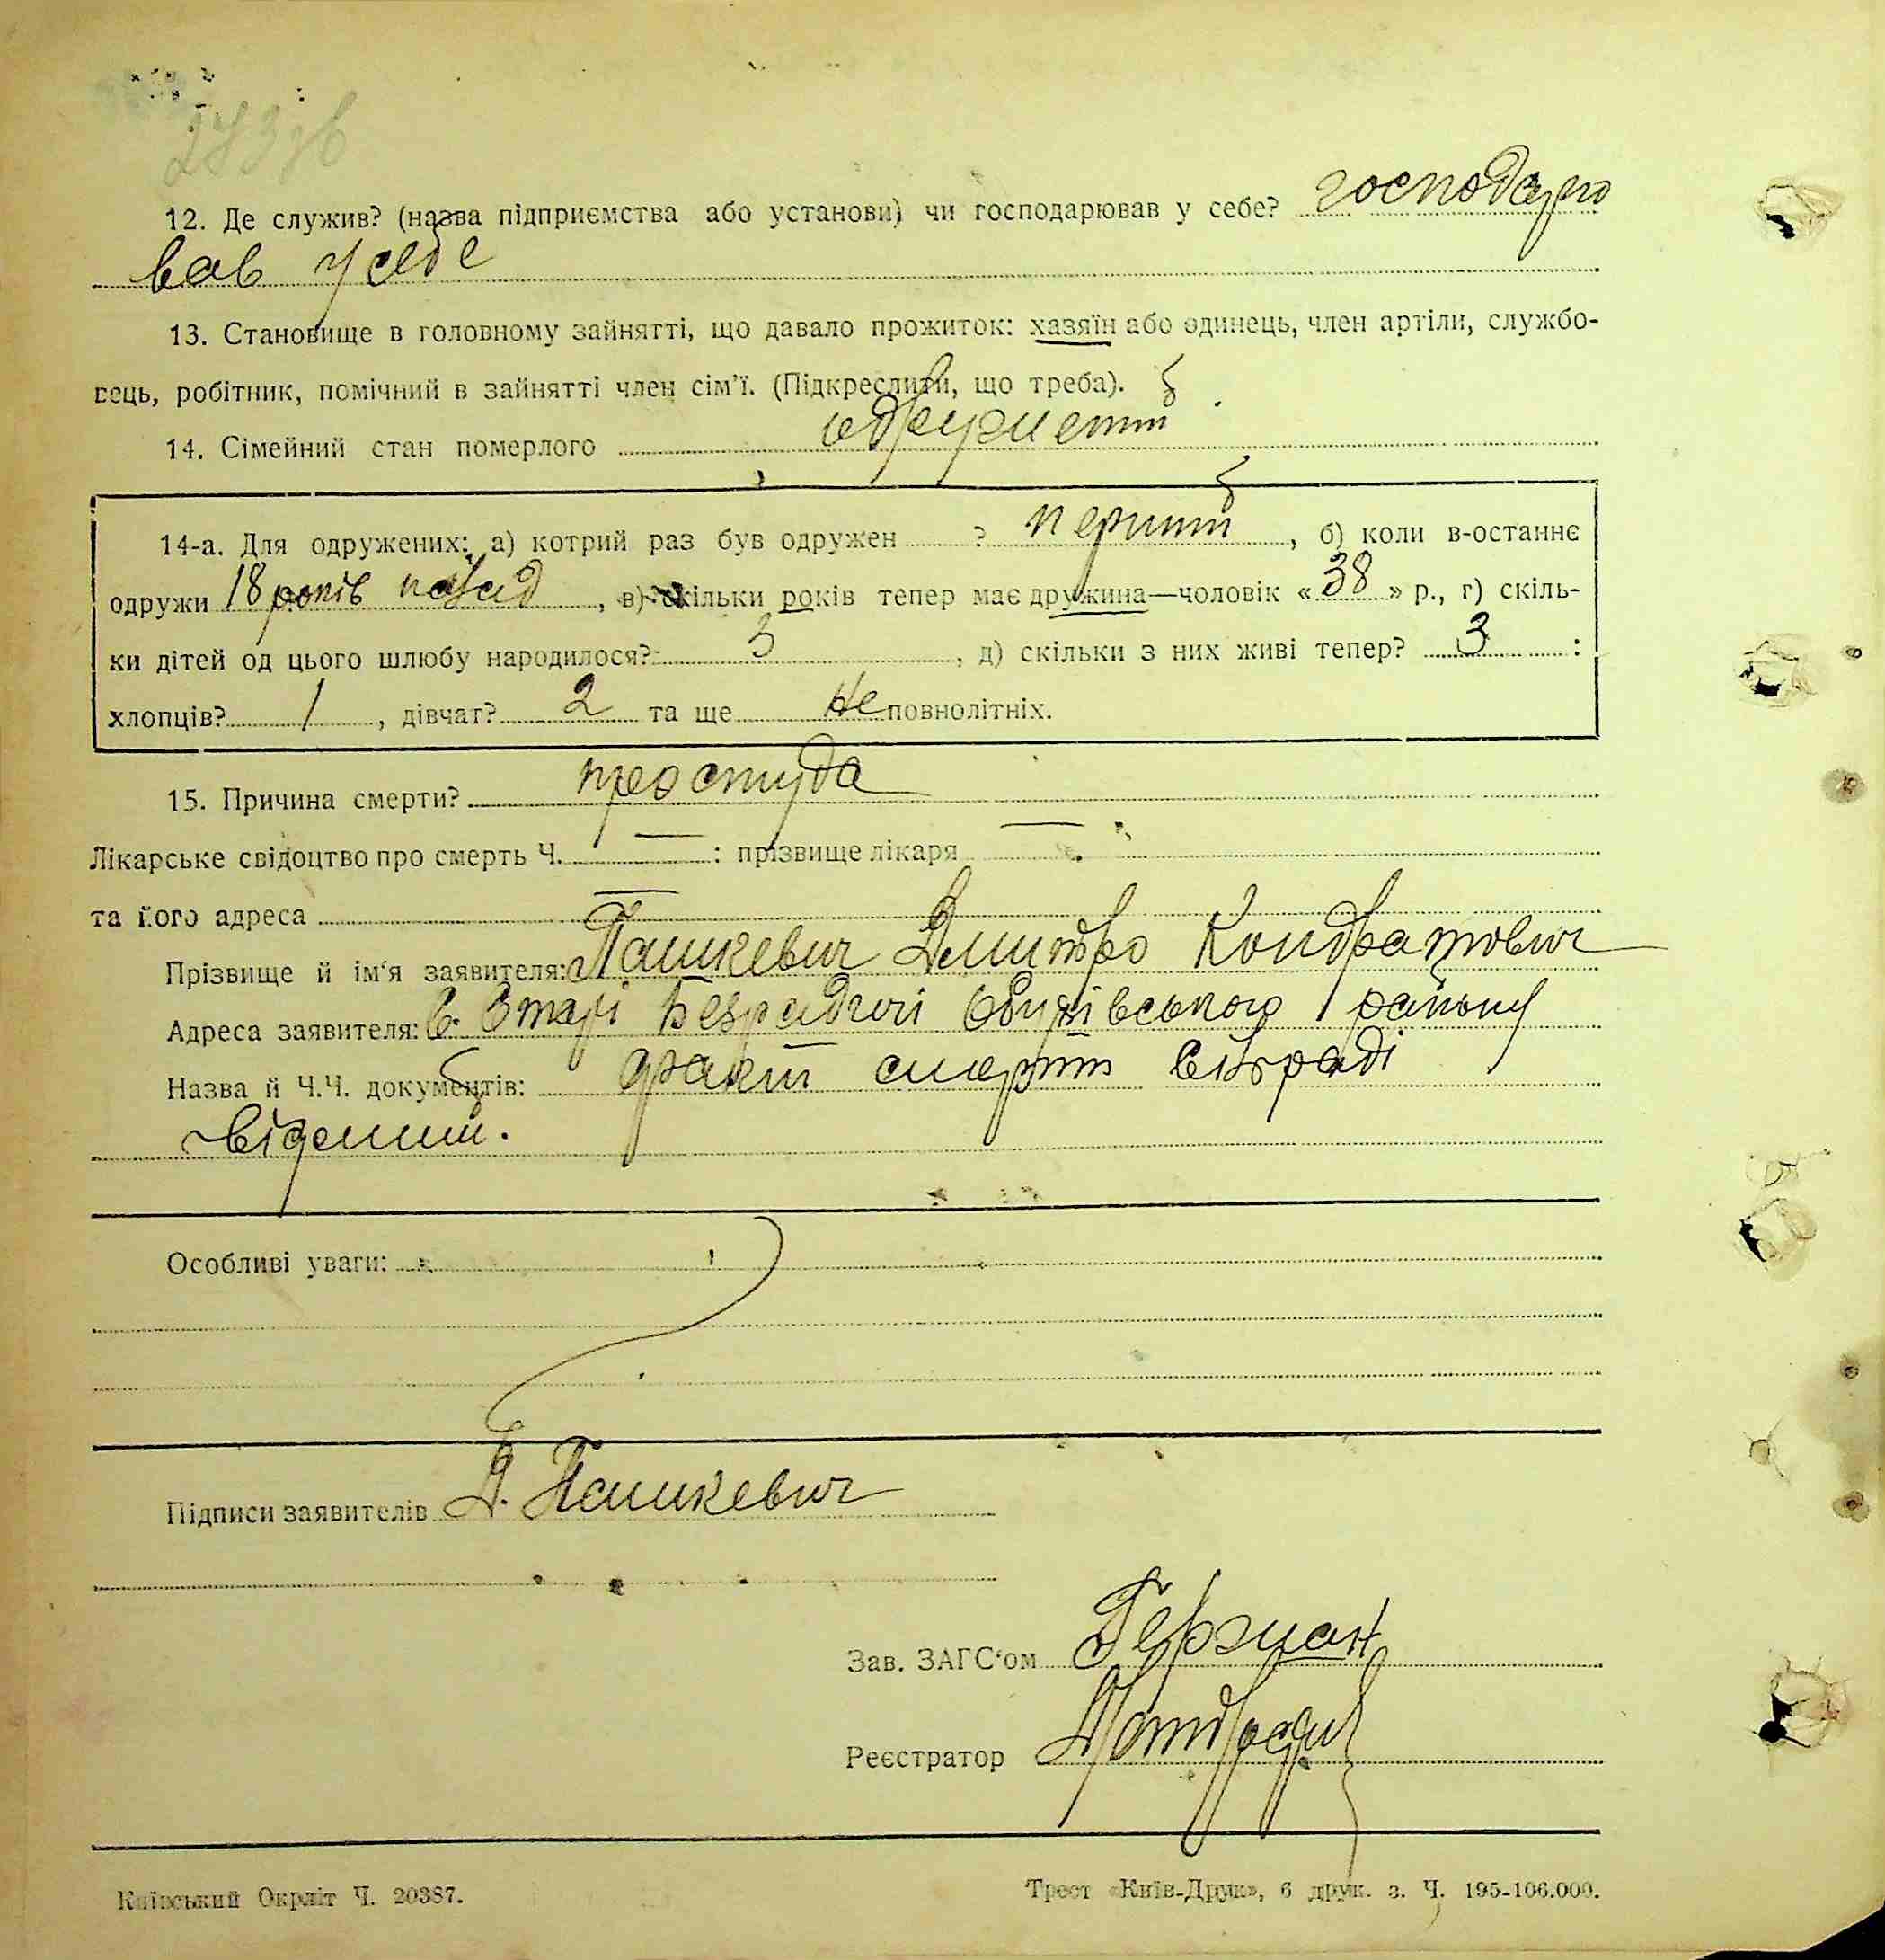 273зв
12. Де служив? (назва підприємства або установи) чи господарював у себе? господарю
вав у себе
13. Становище в головному зайнятті, що давало прожиток: хазяїн або одинець, член артіли, службо-
вець, робітник, помічний в зайнятті член сім'ї. (Підкреслити, що треба).
14. Сімейний стан померлого одружений
14-а. Для одружених: а) котрий раз був одружен ? перший, б) коли в-останнє
одружи 18 років назад, в) скільки років тепер має дружина—чоловік «38» р., г) скіль-
ки дітей од цього шлюбу народилося? 3, д) скільки з них живі тепер? 3 :
хлопців? 1, дівчат? 2 та ще не повнолітніх.
15. Причина смерти? простуда
Лікарське свідоцтво про смерть Ч. — : прізвище лікаря —
та його адреса —
Прізвище й ім'я заявителя: Пашкевич Дмитро Кондратович
Адреса заявителя: с. Старі Безрадичі Обухівського району
Назва й Ч.Ч. документів: факт смерти сільраді
відомий.
Особливі уваги:
Підписи заявителів Д. Пашкевич
Зав. ЗАГС'ом
Реєстратор
Київський Окрліт Ч. 20387.
Трест «Київ-Друк», 6 друк. з. Ч. 195-106.000.